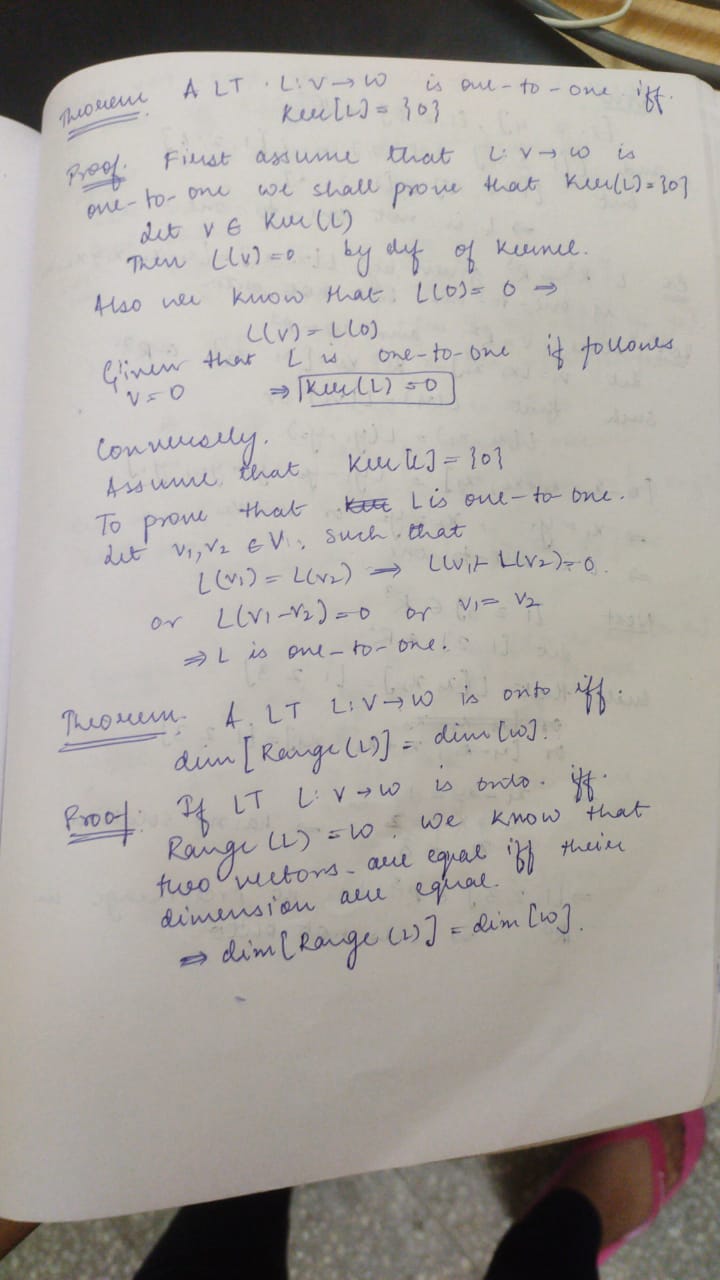 Theorem. A LT. L: V → W is one-to-one iff.
Ker[L] = {0}
Proof. First assume that L: V → W is
one-to-one we shall prove that Ker(L) = {0}
Let v ∈ Ker(L)
Then L(v) = 0 by def of Kernel.
Also we know that L(0) = 0 ⇒
L(v) = L(0)
Given that L is one-to-one if follows
v = 0 ⇒ Ker(L) = 0
Conversely.
Assume that Ker[L] = {0}
To prove that L is one-to-one.
Let v1, v2 ∈ V, such that
L(v1) = L(v2) ⇒ L(v1)- L(v2) = 0.
or L(v1-v2) = 0 or v1 = v2
⇒ L is one-to-one.
Theorem. A LT L: V → W is onto iff.
dim[Range(L)] = dim[W].
Proof: If LT L: V → W is onto. iff.
Range (L) = W. we know that
two vectors are equal iff their
dimension are equal.
⇒ dim[Range(L)] = dim[W].